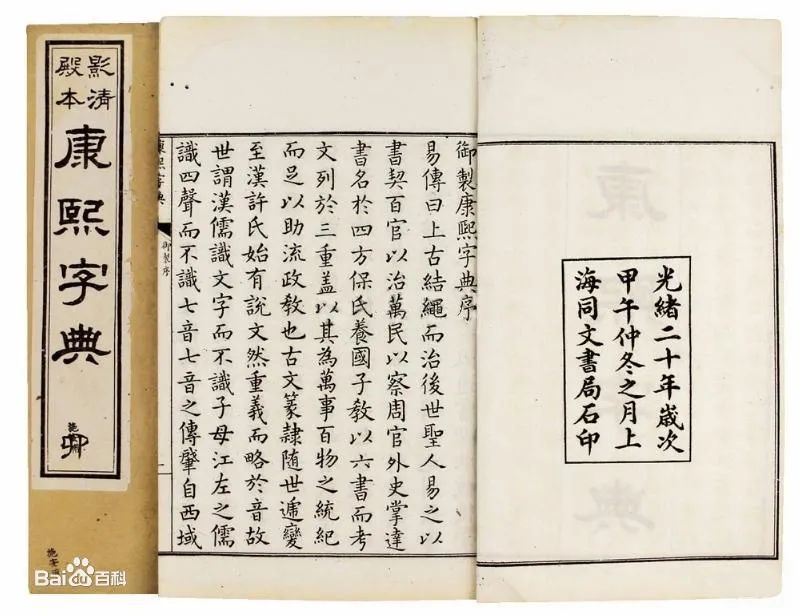 影清
殿本
康熙字典
卯
光緒二十年歲次
甲午仲冬之月上
海同文書局石印
御製康熙字典序
易傳曰上古結繩而治後世聖人易之以
書契百官以治萬民以察周官外史掌達
書名於四方保氏養國子教以六書而考
文列於三重蓋以其為萬事百物之統紀
而足以助流政教也古文篆隸隨世遞變
至漢許氏始有說文然重義而略於音故
世謂漢儒識文字而不識子母江左之儒
識四聲而不識七音七音之傳肇自西域
康熙字典
御製序
一
Bai百科